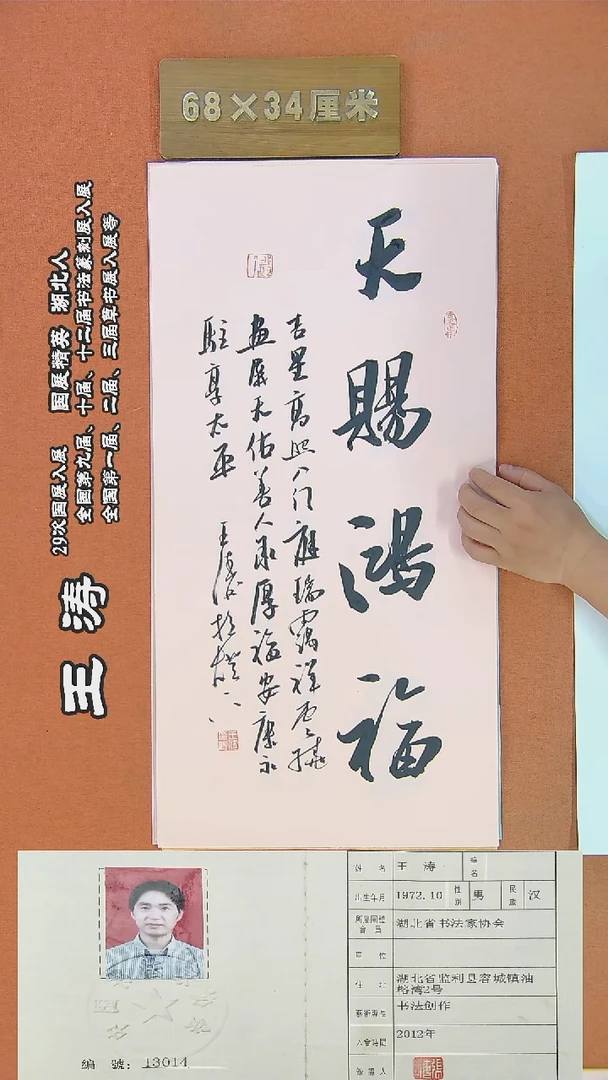 68×34厘米
天赐鸿福
吉星高照八门庭瑞霭祥云绕
画屏天佑善人承厚福安康永
驻享太平 王涛
王涛
29次国展入展 国展精英 湖北人
全国第九届、十届、十二届书法篆刻展入展
全国第一届、二届、三届草书展入展等
姓名 王涛
出生年月 1972.10 性别 男 民族 汉
湖北省书法家协会
住址 湖北省监利县容城镇油
榨湾2号
书法创作
入會時間 2012年
编號：13014